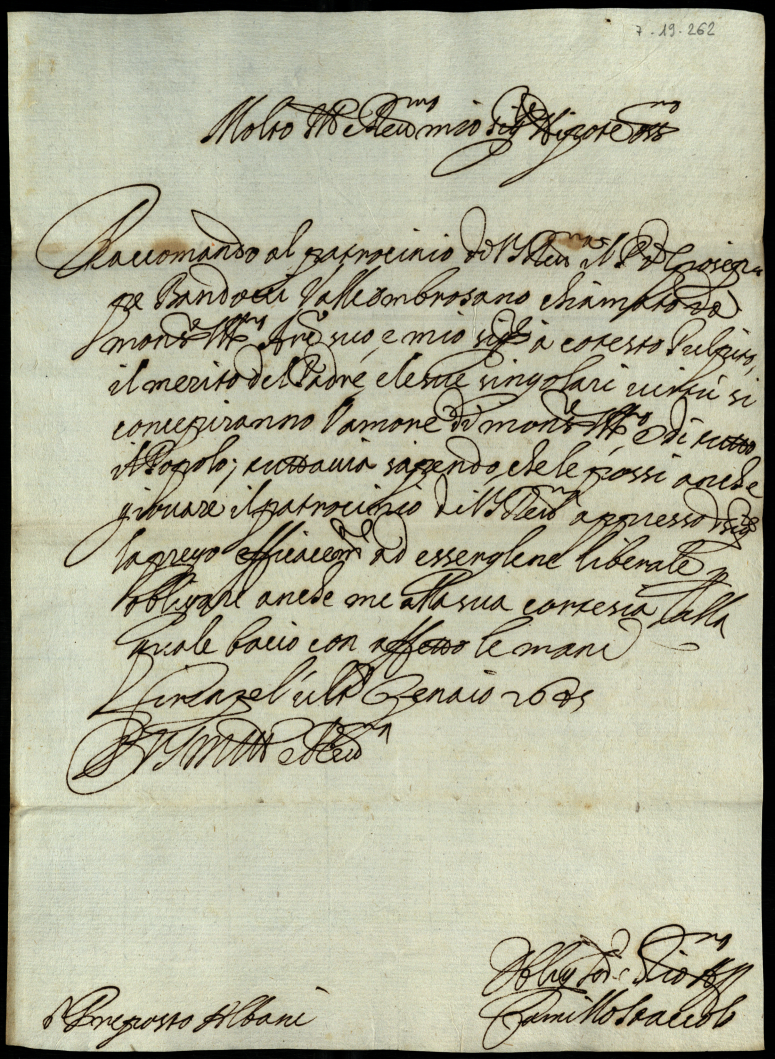 7-19-262
Molto Ill. e Rev.mo mio sig.r Nipote oss.mo
Raccomando al patrocinio di V.S. Rev.ma il P. D. Giosep
pe Bandocci Vallombrosano chiamato da
mons.r Ill.mo suo, e mio sig.re a cotesto Pulpito,
il merito del Padre e le sue singolari virtù si
concepiranno l'amore di mons.r Ill.mo e di tutto
il Popolo; tuttavia sapendo, che le possi anche
giovare il patrocinio di V.S. Rev.ma appresso
la prego efficacem.te ad essergliene liberale p
obligare anche me alla sua cortesia, alla
quale bacio con affetto le mani
Firenze l'ult.o Genaio
D V.S. M. Ill. e Rev.ma
Oblig. Ser.e Zio
s.r Preposto Albani
Camillo Staccoli